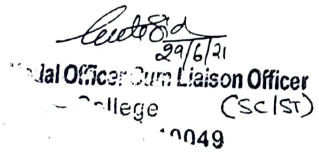 29/6/21
dal Officer Cum Liaison Officer
College (SC/ST)
0049